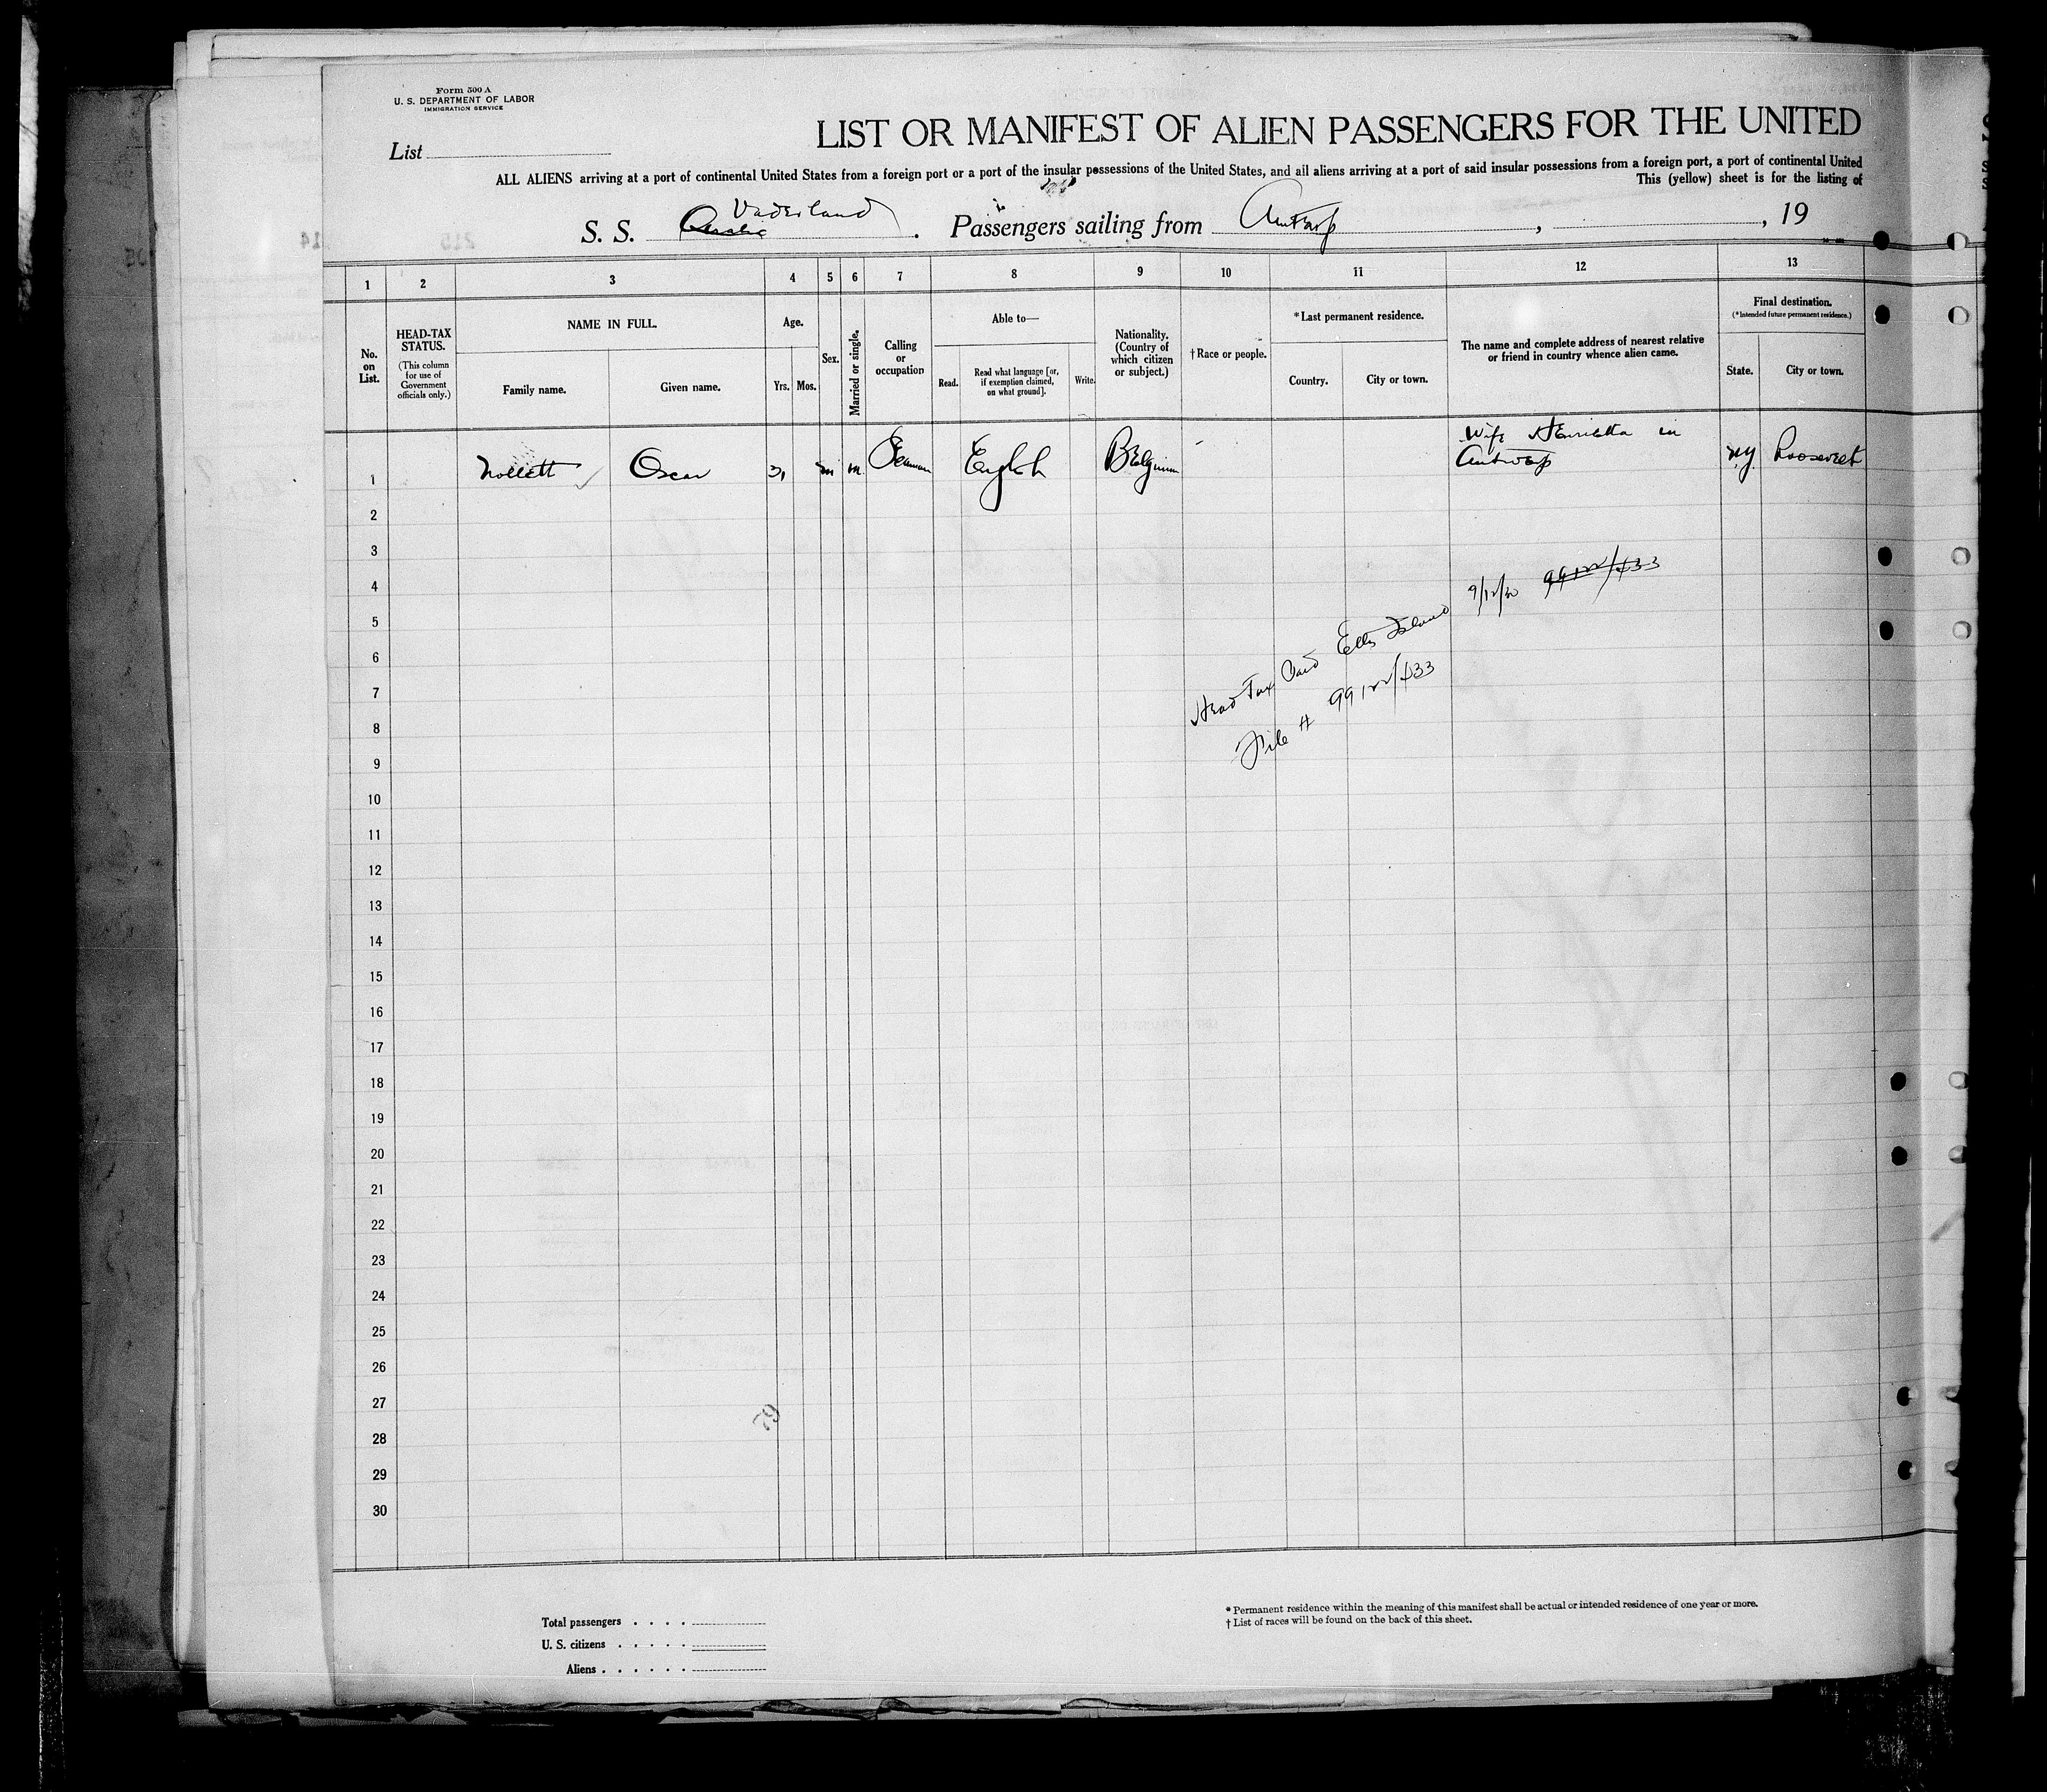 Form 500 A
U. S. DEPARTMENT OF LABOR
IMMIGRATION SERVICE
List
LIST OR MANIFEST OF ALIEN PASSENGERS FOR THE UNITED
ALL ALIENS arriving at a port of continental United States from a foreign port or a port of the insular possessions of the United States, and all aliens arriving at a port of said insular possessions from a foreign port, a port of continental United
This (yellow) sheet is for the listing of
S. S. Vaderland . Passengers sailing from Antwerp , , 19
1 2 3 4 5 6 7 8 9 10 11 12 13
No. on List.
HEAD-TAX STATUS.
(This column for use of Government officials only.)
NAME IN FULL.
Family name.
Given name.
Age.
Yrs. Mos.
Sex.
Married or single.
Calling or occupation
Able to—
Read.
Read what language [or, if exemption claimed, on what ground].
Write.
Nationality. (Country of which citizen or subject.)
†Race or people.
*Last permanent residence.
Country.
City or town.
The name and complete address of nearest relative or friend in country whence alien came.
Final destination.
(*Intended future permanent residence.)
State.
City or town.
1 Nollett Oscar 31 m m Seaman English Belgium Wife Henrietta in Antwerp NY Roosevelt
2
3
4
9/12/20 99122/433
5
6
7
8
Head Tax Paid Ellis Island
File # 99122/433
9
10
11
12
13
14
15
16
17
18
19
20
21
22
23
24
25
26
27
28
29
30
Total passengers . . . .
U. S. citizens . . . . .
Aliens . . . . . .
* Permanent residence within the meaning of this manifest shall be actual or intended residence of one year or more.
† List of races will be found on the back of this sheet.